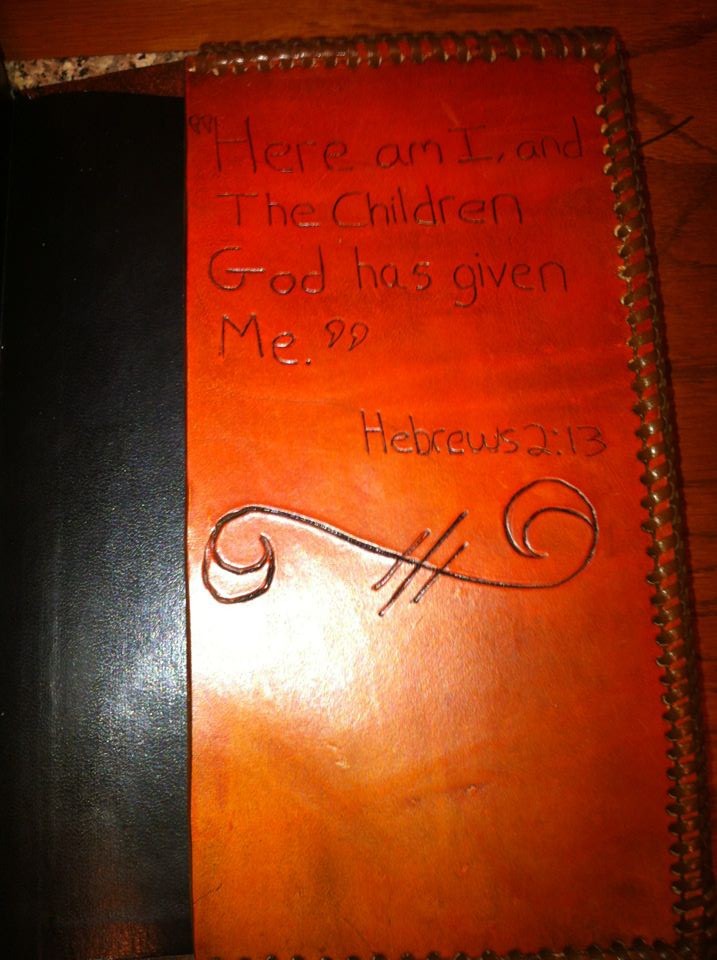 “Here am I, and
The Children
God has given
Me.”
Hebrews 2:13